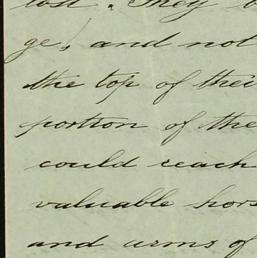 lost. They
ge, and not
the top of their
portion of the
could reach
valuable hors
and arms of